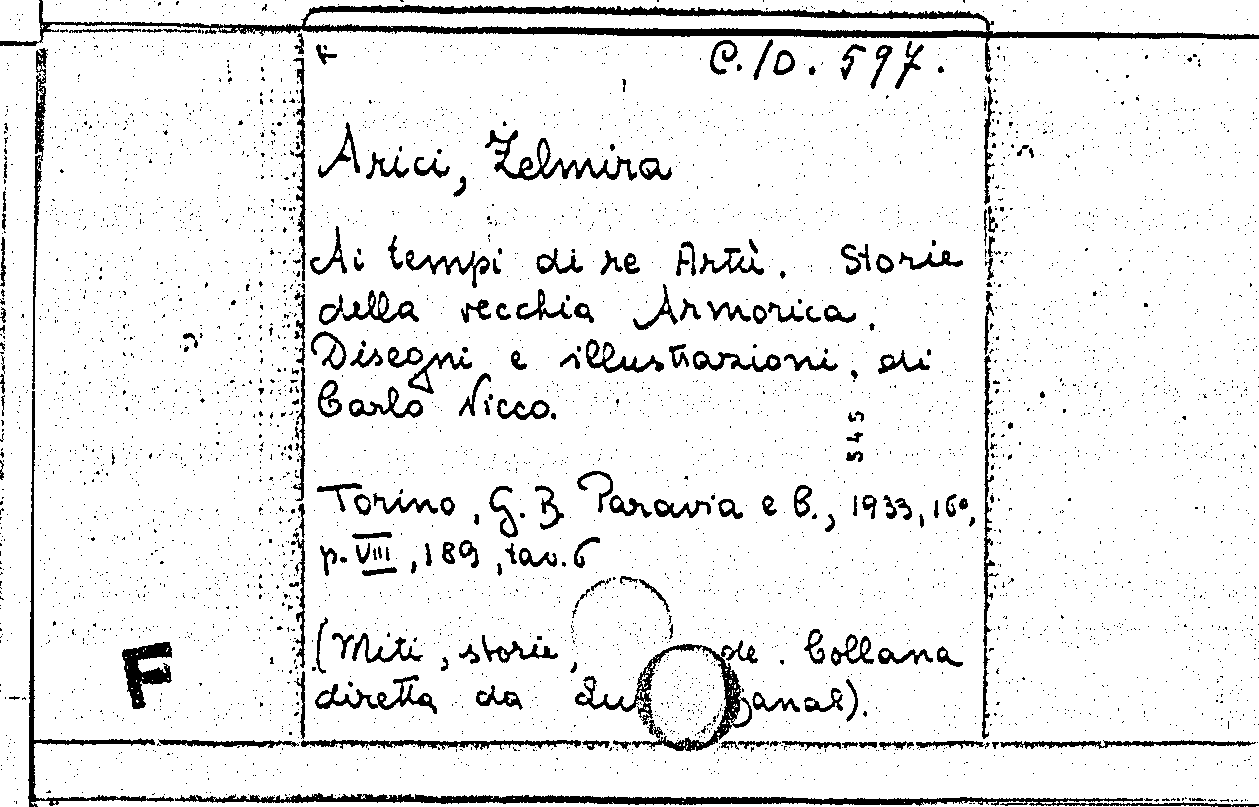 C.10.597.
Arici, Zelmira
Ai tempi di re Artù. Storie
della vecchia Armorica.
Disegni e illustrazioni, di
Carlo Nicco.
545
Torino, G. B. Paravia e C., 1933, 16°,
p. VIII, 189, tav. 6
(Miti, storie, de. Collana
diretta da
F